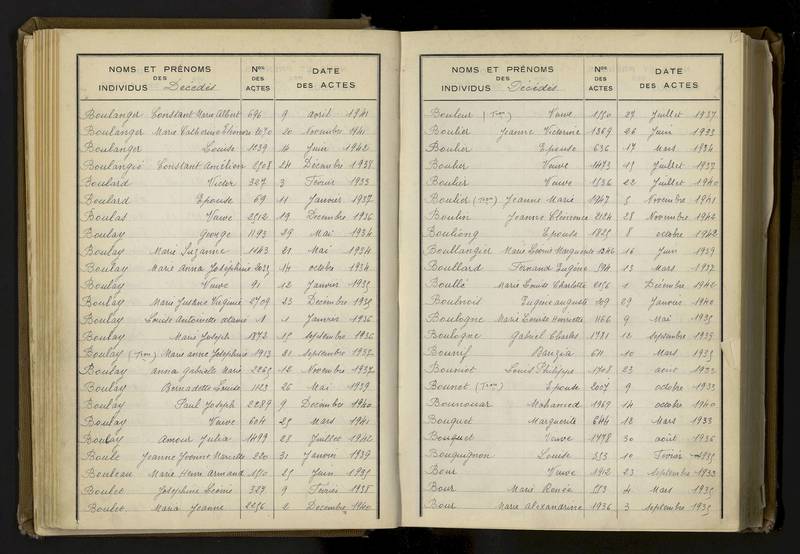 NOMS ET PRÉNOMS
DES
INDIVIDUS Décédés
Nos
DES
ACTES
DATE
DES ACTES
Boulanger Constant Marie Albert 696 9 avril 1941
Boulanger Marie Catherine Eléonore 2070 20 Novembre 1941
Boulanger Louise 1039 14 Juin 1942
Constant 24 Décembre 1938
Boulard Victor 327 3 Février 1933
Boulard Epouse 69 11 Janvier 1937
Boulas Veuve 2512 19 Décembre 1936
Boulay George 1193 29 Mai 1934
Boulay Marie Suzanne 1143 21 Mai 1934
Boulay Marie Anna Joséphine 14 octobre 1934
Boulay Veuve 91 12 Janvier 1935
Boulay Marie Justine Virginie 2709 23 Décembre 1935
Boulay Louise Antoinette 1 Janvier 1936
Boulay Marie Joseph 1872 15 septembre 1936
Boulay Marie anne Joséphine 1913 septembre 1937
Boulay anna Gabrielle Marie 2265 12 Novembre 1937
Boulay Bernadette Louise 1123 26 Mai 1939
Boulay Paul Joseph 2289 9 Décembre 1940
Boulay Veuve 604 25 Mars 1941
Boulay Amour Julia 1499 28 Juillet 1942
Boule Jeanne Yvonne Marcelle 220 31 Janvier 1939
Bouleau Marie Henri Armand 1510 25 Juin 1935
Boulet Joséphine Léonie 327 9 Février 1938
Boulet Maria Jeanne 2256 2 Décembre 1940
NOMS ET PRÉNOMS
DES
INDIVIDUS Décédés
Nos
DES
ACTES
DATE
DES ACTES
Bouleur Veuve 1550 27 Juillet 1937
Boulier Jeanne Victorine 1369 26 Juin 1933
Boulier Epouse 636 17 Mars 1934
Boulier Veuve 1473 15 Juillet 1937
Boulier Veuve 1536 22 Juillet 1940
Boulier Jeanne Marie 1947 5 Novembre 1941
Boulin Jeanne Clémence 2124 28 Novembre 1942
Epouse 1825 8 octobre 1942
Boullangier Marie Léonie Marguerite 1246 16 Juin 1939
Boullard Fernand Eugène 594 13 Mars 1937
Boullé Marie Louise Charlotte 2156 1 Décembre 1942
Eugène auguste 209 29 Janvier 1940
Boulogne Marie Louise Henriette 1166 9 Mai 1935
Boulogne Gabriel Charles 1781 12 septembre 1935
611 10 Mars 1935
Bouniot Louis Philippe 1708 23 août 1933
Bounot Epouse 2007 9 octobre 1933
Bounouar Mohamed 1969 14 octobre 1940
Bouquet Marguerite 644 18 Mars 1933
Bouquet Veuve 1778 30 août 1936
Bouquignon Louise 353 10 Février 1935
Bour Veuve 1912 23 septembre 1933
Bour Marie Renée 553 4 Mars 1935
Bour Marie Alexandrine 1936 3 septembre 1935